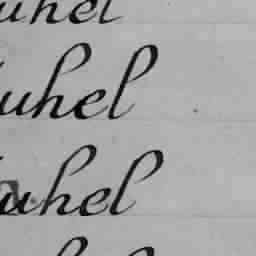 uhel
uhel
uhel